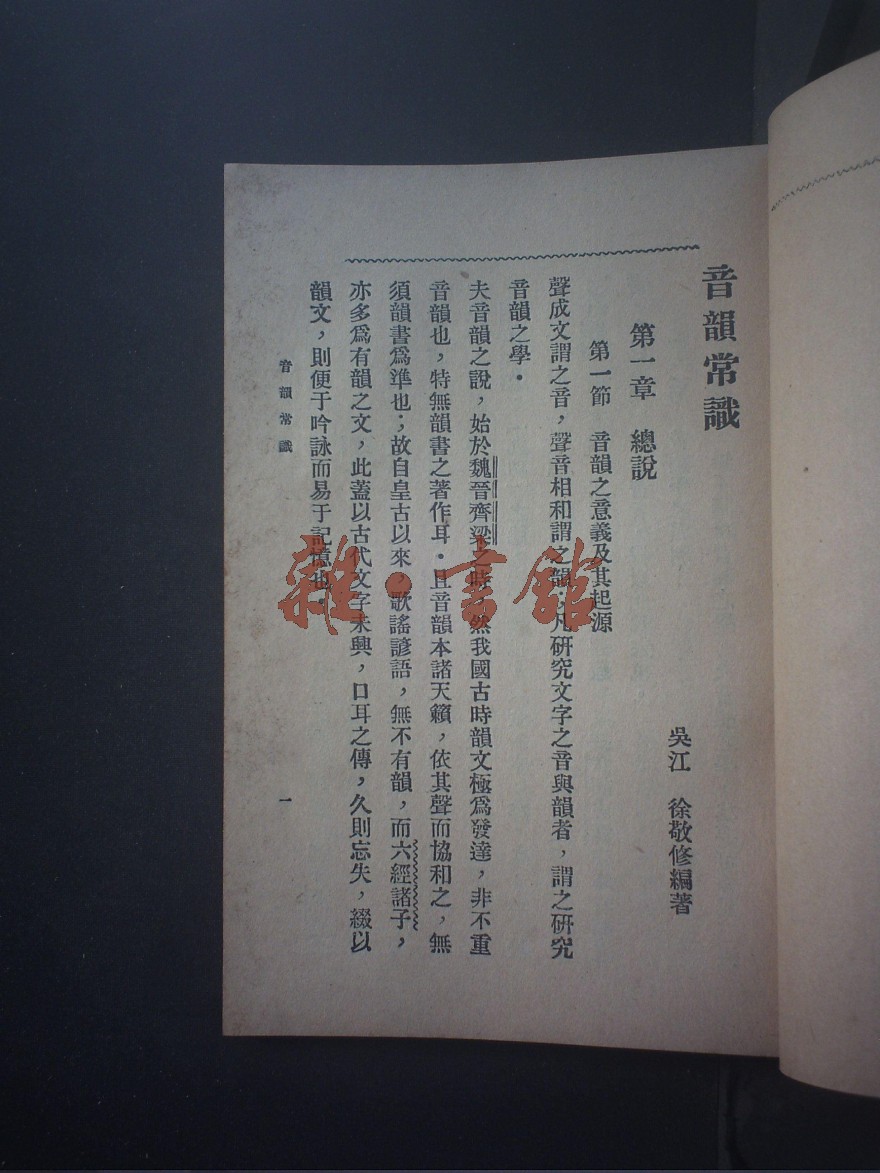 音韻常識
吳江　徐敬修編著
第一章　總說
第一節　音韻之意義及其起源
聲成文謂之音，聲音相和謂之韻；凡研究文字之音與韻者，謂之研究
音韻之學．
夫音韻之說，始於魏晉齊梁之時，然我國古時韻文極爲發達，非不重
音韻也，特無韻書之著作耳．且音韻本諸天籟，依其聲而協和之，無
須韻書爲準也；故自皇古以來，歌謠諺語，無不有韻，而六經諸子，
亦多爲有韻之文，此蓋以古代文字未興，口耳之傳，久則忘失，綴以
韻文，則便于吟詠而易于記憶也．
音韻常識
一
雜·書館